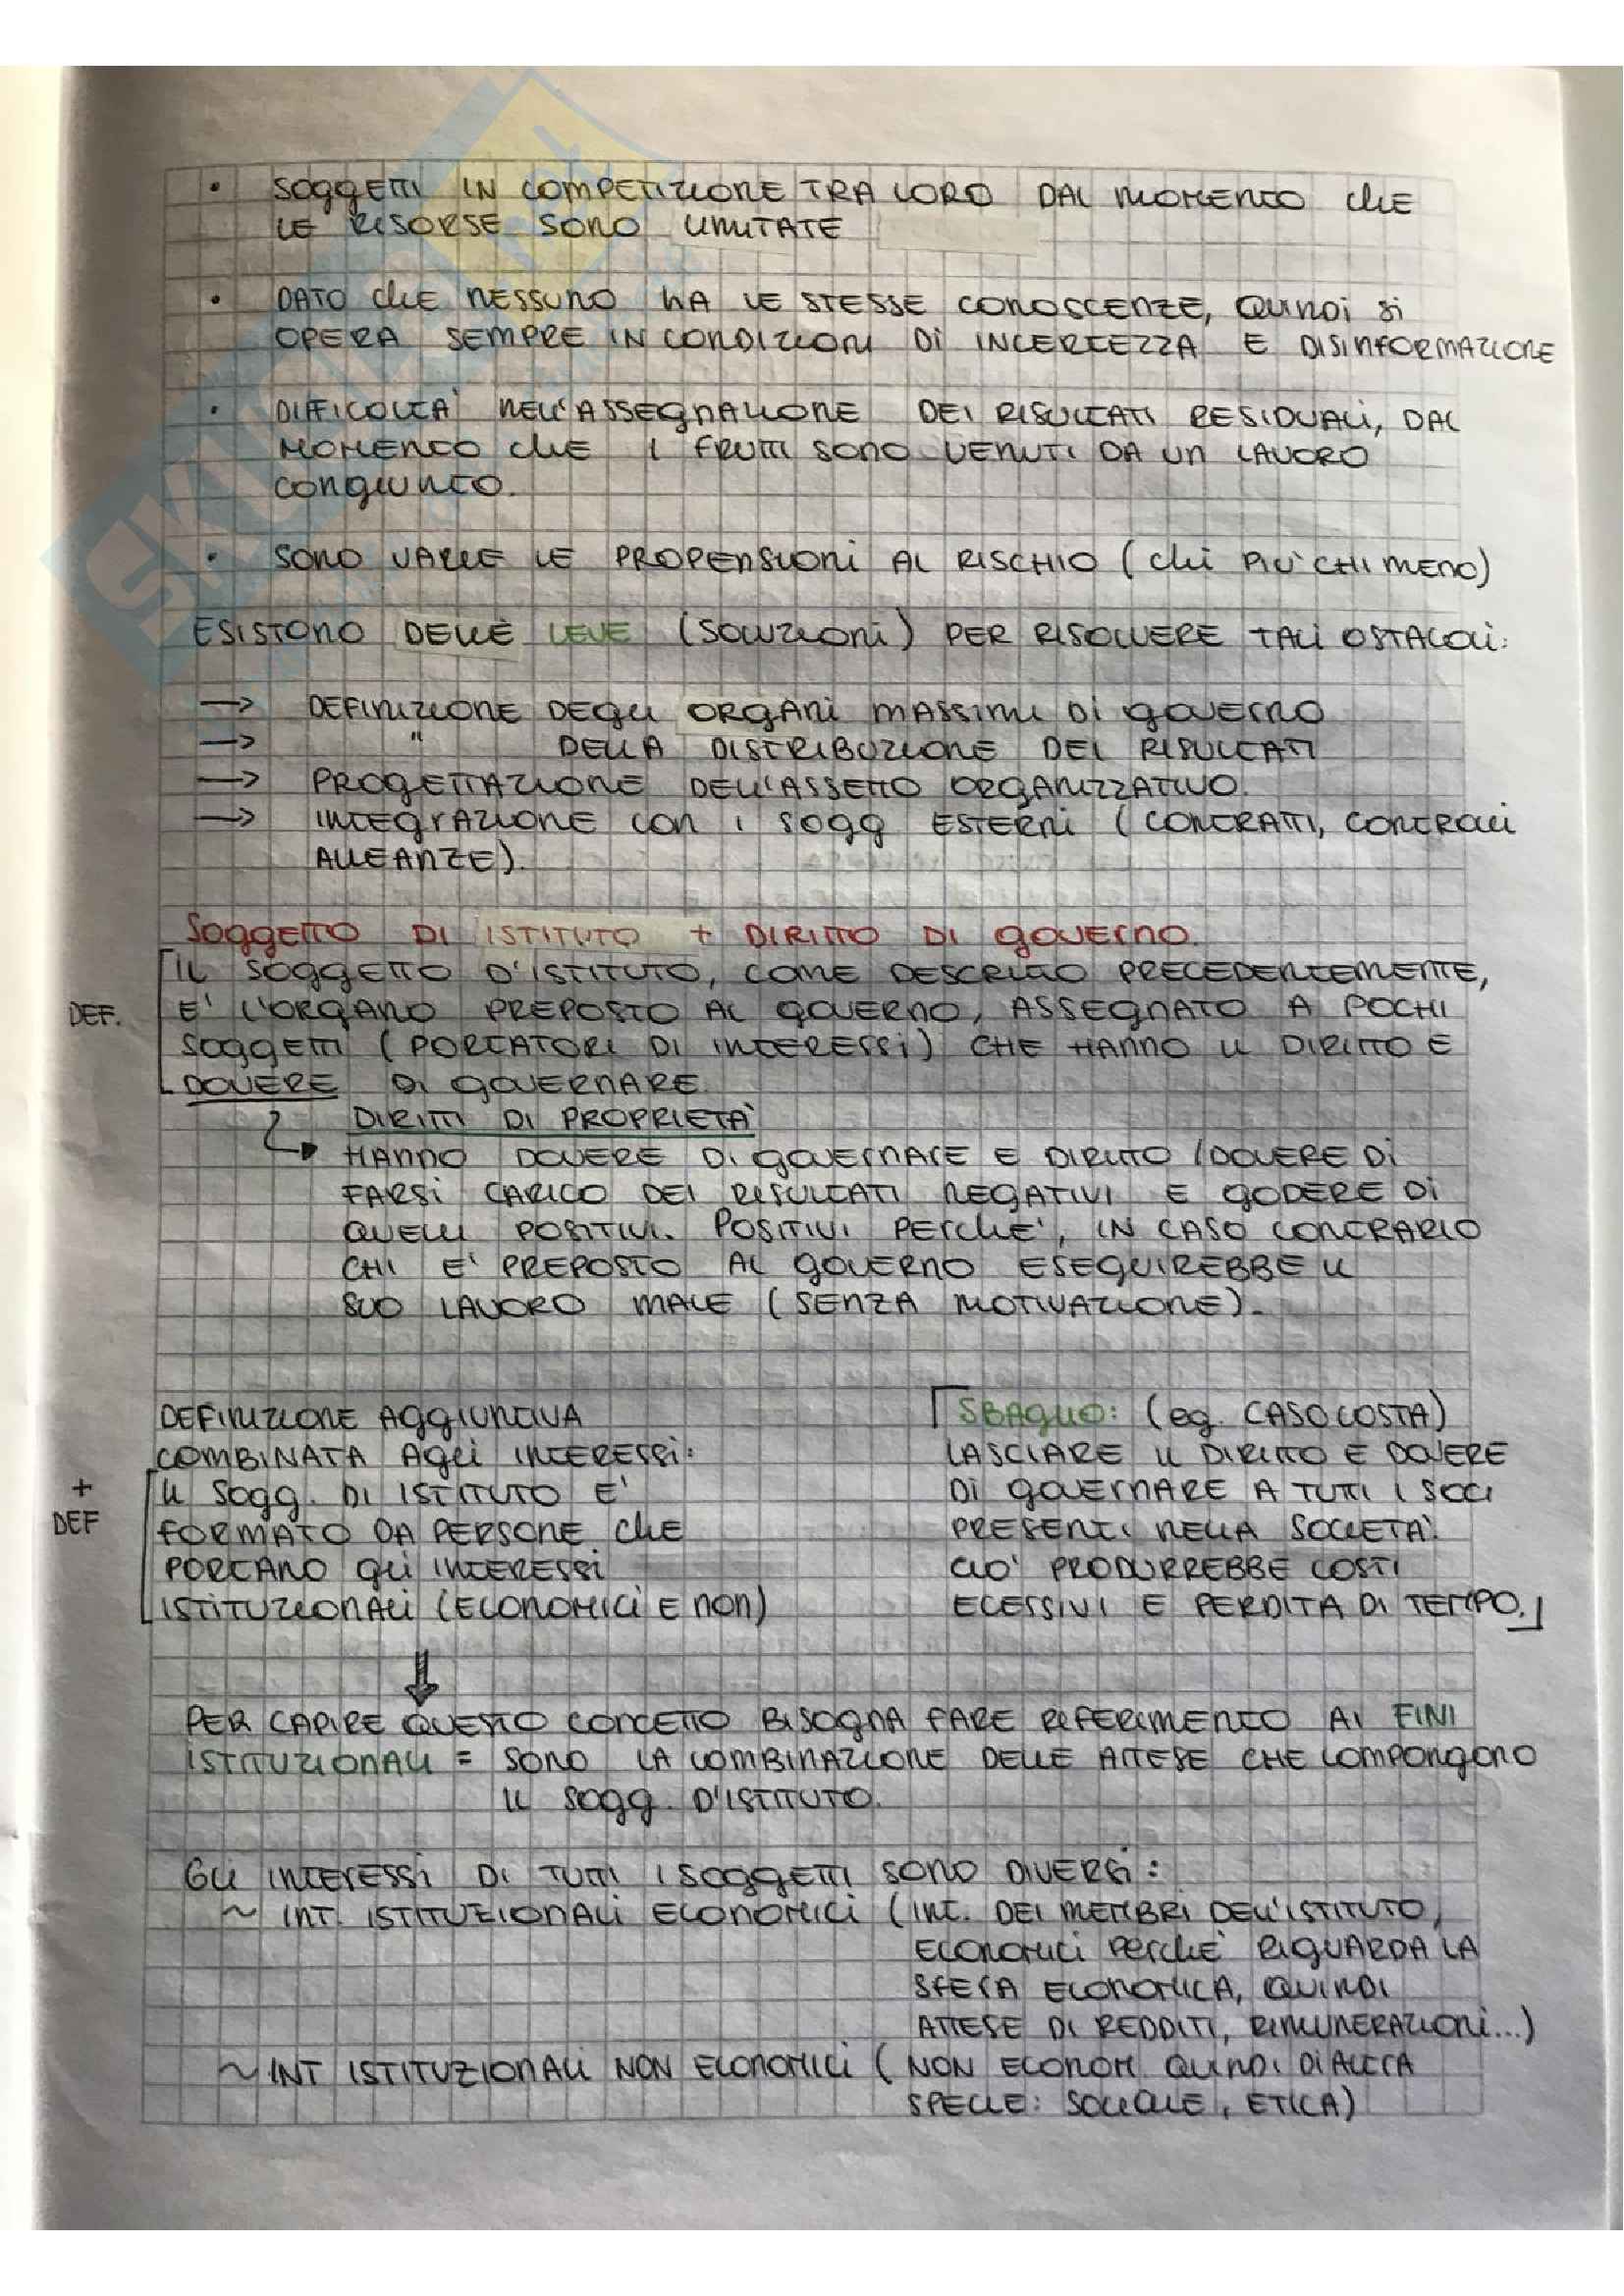 • SOGGETTI IN COMPETIZIONE TRA LORO DAL MOMENTO CHE
LE RISORSE SONO LIMITATE
• DATO CHE NESSUNO HA LE STESSE CONOSCENZE, QUINDI SI
OPERA SEMPRE IN CONDIZIONI DI INCERTEZZA E DISINFORMAZIONE
• DIFFICOLTA' NELL'ASSEGNAZIONE DEI RISULTATI RESIDUALI, DAL
MOMENTO CHE I FRUTTI SONO VENUTI DA UN LAVORO
CONGIUNTO.
• SONO VARIE LE PROPENSIONI AL RISCHIO (CHI PIU' CHI MENO)
ESISTONO DELLE LEVE (SOLUZIONI) PER RISOLVERE TALI OSTACOLI:
→ DEFINIZIONE DEGLI ORGANI MASSIMI DI GOVERNO
→ " DELLA DISTRIBUZIONE DEI RISULTATI
→ PROGETTAZIONE DELL'ASSETTO ORGANIZZATIVO.
→ INTEGRAZIONE CON I SOGG ESTERNI (CONTRATTI, CONTROLLI
ALLEANZE).
SOGGETTO DI ISTITUTO + DIRITTO DI GOVERNO.
IL SOGGETTO D'ISTITUTO, COME DESCRITTO PRECEDENTEMENTE,
DEF. E' L'ORGANO PREPOSTO AL GOVERNO, ASSEGNATO A POCHI
SOGGETTI (PORTATORI DI INTERESSI) CHE HANNO IL DIRITTO E
DOVERE DI GOVERNARE.
DIRITTI DI PROPRIETA'
HANNO DOVERE DI GOVERNARE E DIRITTO / DOVERE DI
FARSI CARICO DEI RISULTATI NEGATIVI E GODERE DI
QUELLI POSITIVI. POSITIVI PERCHE', IN CASO CONTRARIO
CHI E' PREPOSTO AL GOVERNO ESEGUIREBBE IL
SUO LAVORO MALE (SENZA MOTIVAZIONE).
DEFINIZIONE AGGIUNTIVA
COMBINATA AGLI INTERESSI:
+ DEF
IL SOGG. DI ISTITUTO E'
FORMATO DA PERSONE CHE
PORTANO GLI INTERESSI
ISTITUZIONALI (ECONOMICI E NON)
SBAGLIO: (eg. CASO COSTA)
LASCIARE IL DIRITTO E DOVERE
DI GOVERNARE A TUTTI I SOCI
PRESENTI NELLA SOCIETA'.
CIO' PRODURREBBE COSTI
ECESSIVI E PERDITA DI TEMPO.
PER CAPIRE QUESTO CONCETTO BISOGNA FARE RIFERIMENTO AI FINI
ISTITUZIONALI = SONO LA COMBINAZIONE DELLE ATTESE CHE COMPONGONO
IL SOGG. D'ISTITUTO.
GLI INTERESSI DI TUTTI I SOGGETTI SONO DIVERSI:
~ INT. ISTITUZIONALI ECONOMICI (INT. DEI MEMBRI DELL'ISTITUTO,
ECONOMICI PERCHE' RIGUARDA LA
SFERA ECONOMICA, QUINDI
ATTESE DI REDDITI, RIMUNERAZIONI...)
~ INT ISTITUZIONALI NON ECONOMICI (NON ECONOM QUINDI DI ALTRA
SPECIE: SOCIALE, ETICA)